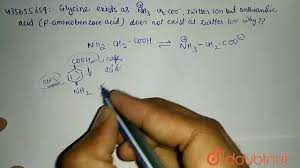 435655659: Glycine exists as NH₃-CH₂-COO⊖ zwitter ion but anthranilic
acid (P-aminobenzoic acid) does not exist as zwitter ion why??
NH₂-CH₂-COOH ⇌ ⊕NH₃-CH₂-COO⊖
COOH
acid
NH₂
doubtnut